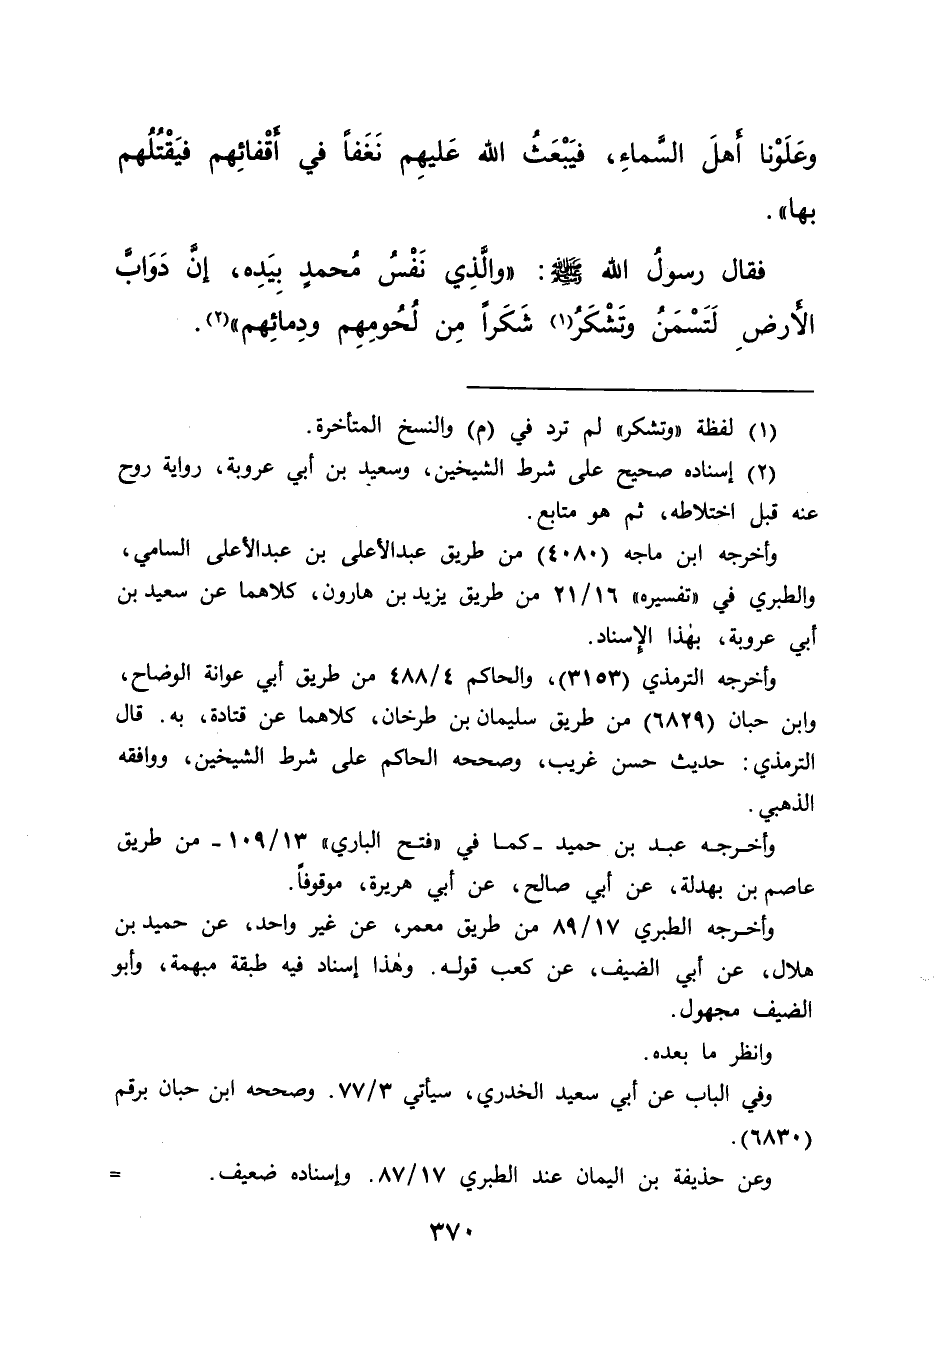 وعَلَوْنا أَهلَ السَّماءِ، فيَبْعَثُ الله عَليهِم نَغَفاً في أَقْفائِهم فيَقْتُلُهم
بها» .
فقال رسولُ الله ﷺ : «والَّذِي نَفْسُ مُحمدٍ بِيَدِه، إنَّ دَوَابَّ
الأَرضِ لَتَسْمَنُ وتَشْكَرُ(١) شَكَراً مِن لُحُومِهم ودِمائِهم»(٢) .
(١) لفظة «وتشكر» لم ترد في (م) والنسخ المتأخرة .
(٢) إسناده صحيح على شرط الشيخين، وسعيد بن أبي عروبة، رواية روح
عنه قبل اختلاطه، ثم هو متابع .
وأخرجه ابن ماجه (٤٠٨٠) من طريق عبدالأعلى بن عبدالأعلى السامي،
والطبري في «تفسيره» ٢١/١٦ من طريق يزيد بن هارون، كلاهما عن سعيد بن
أبي عروبة، بهٰذا الإِسناد .
وأخرجه الترمذي (٣١٥٣)، والحاكم ٤٨٨/٤ من طريق أبي عوانة الوضاح،
وابن حبان (٦٨٢٩) من طريق سليمان بن طرخان، كلاهما عن قتادة، به . قال
الترمذي : حديث حسن غريب، وصححه الحاكم على شرط الشيخين، ووافقه
الذهبي .
وأخرجه عبد بن حميد ـ كما في «فتح الباري» ١٠٩/١٣ ـ من طريق
عاصم بن بهدلة، عن أبي صالح، عن أبي هريرة، موقوفاً .
وأخرجه الطبري ٨٩/١٧ من طريق معمر، عن غير واحد، عن حميد بن
هلال، عن أبي الضيف، عن كعب قوله . وهٰذا إسناد فيه طبقة مبهمة، وأبو
الضيف مجهول .
وانظر ما بعده .
وفي الباب عن أبي سعيد الخدري، سيأتي ٧٧/٣ . وصححه ابن حبان برقم
(٦٨٣٠) .
وعن حذيفة بن اليمان عند الطبري ٨٧/١٧ . وإسناده ضعيف . =
٣٧٠